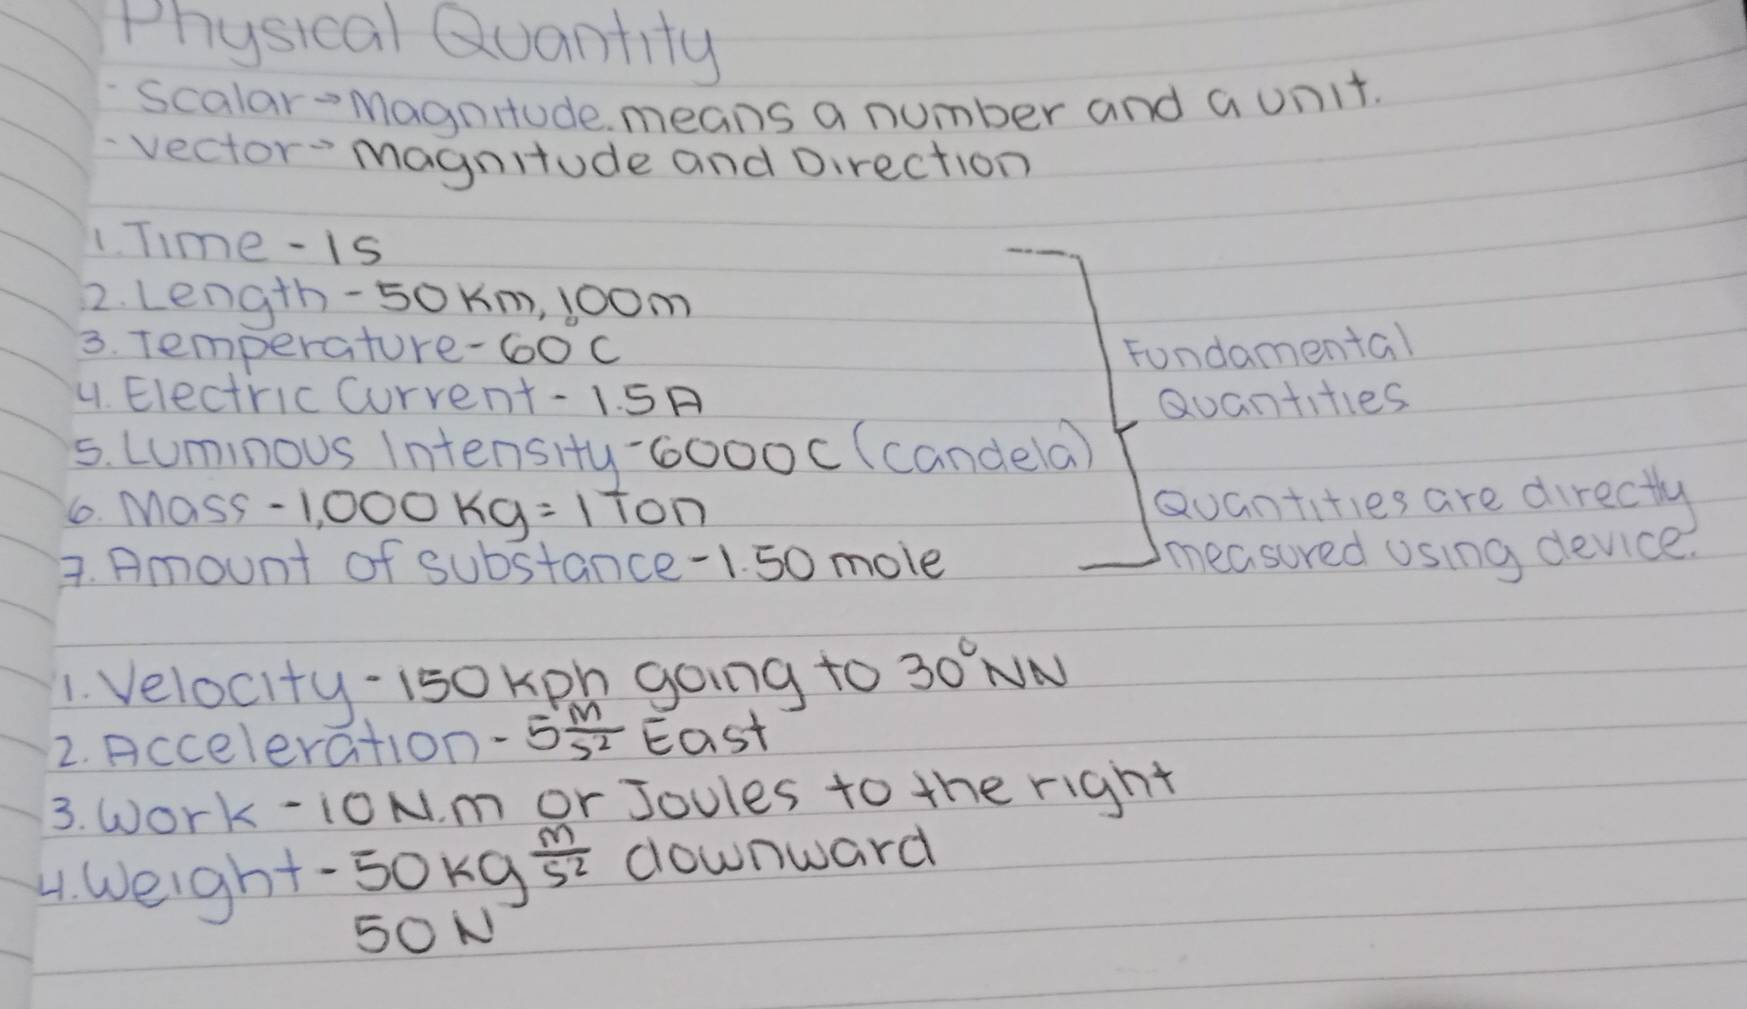 Physical Quantity
- Scalar → Magnitude. means a number and a unit.
- Vector → Magnitude and Direction
1. Time - 1s
2. Length - 50 Km, 100m
3. Temperature - 60°C
4. Electric Current - 1.5A
5. Luminous Intensity - 6000C (candela)
6. Mass - 1,000 Kg = 1 Ton
7. Amount of substance - 1.50 mole
Fundamental
Quantities
Quantities are directly
measured using device.
1. Velocity - 150 Kph going to 30° NW
2. Acceleration - 5 m/s² East
3. Work - 10 N.m or Joules to the right
4. Weight - 50 kg m/s² downward
50 N